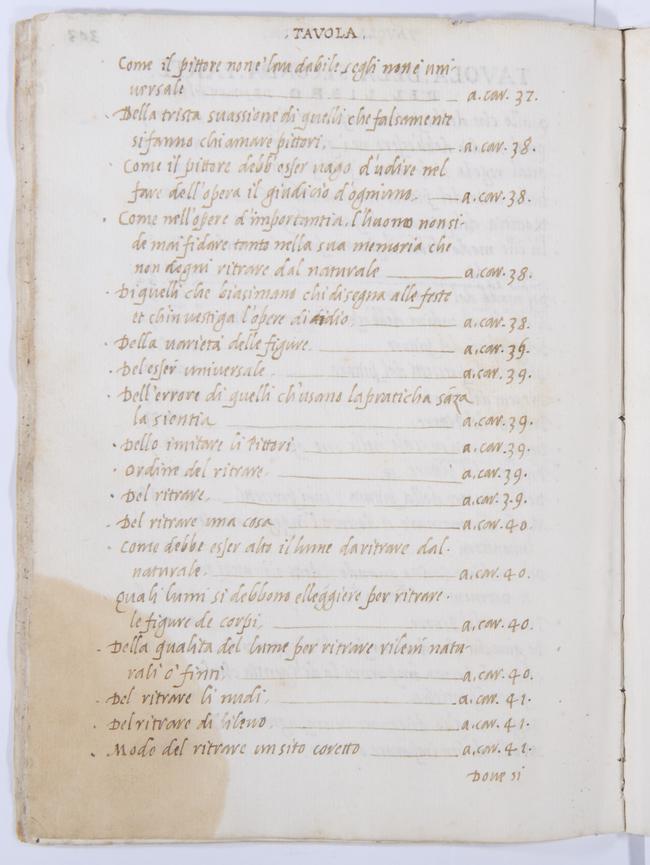 . TAVOLA .
Come il pittore non è laudabile segli non è uni
versale a. car. 37.
Della trista suassione di quelli che falsamente
si fanno chiamare pittori. a. car. 38.
Come il pittore debb' esser vago d'udire nel
fare dell'opera il giudicio d'ogniuno. a. car. 38.
Come nell'opere d'importantia, l'huomo non si
de mai fidare tanto nella sua memoria che
non degni ritrare dal naturale a. car. 38.
Di quelli che biasimano chi disegna alle feste
et ch'investiga l'opere di dio. a. car. 38.
Della varietà delle figure. a. car. 39.
Del esser universale. a. car. 39.
Dell'errore di quelli ch'usano la praticha sāza
la sientia a. car. 39.
Dello imitare li Pittori a. car. 39.
Ordine del ritrare. a. car. 39.
Del ritrare. a. car. 39.
Del ritrare una cosa a. car. 40.
Come debbe esser alto il lume da ritrare dal
naturale. a. car. 40.
Quali lumi si debbono elleggiere per ritrare
le figure de corpi. a. car. 40.
Della qualita del lume per ritrare rilevi natu
rali o' finti a. car. 40.
Del ritrare li nudi. a. car. 41.
Del ritrare di rilevo. a. car. 41.
Modo del ritrare un sito coretto a. car. 41.
Dove si